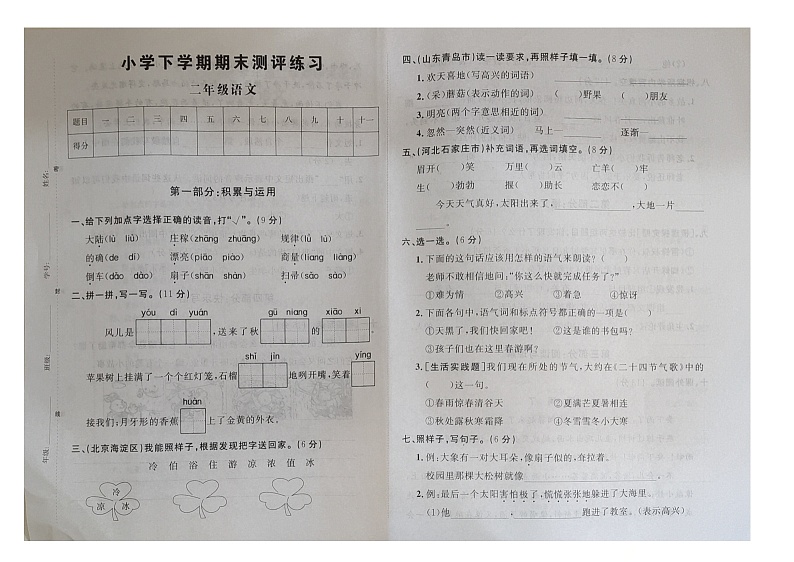 小学下学期期末测评练习
二年级语文
题目 一 二 三 四 五 六 七 八 九 十 十一
得分
第一部分:积累与运用
一、给下列加点字选择正确的读音,打“√”。(9 分)
大陆(lù liù) 庄稼(zhāng zhuāng) 规律(lǜ liù)
的确(de dí) 漂亮(piào piāo) 商量(liang liàng)
倒车(dǎo dào) 扇子(shān shàn) 扫帚(sào sǎo)
二、拼一拼,写一写。(11 分)
yóu dì yuán gū niang xiāo xi
风儿是 ,送来了秋 的 。
shí jīn yíng
苹果树上挂满了一个个红灯笼,石榴 地咧开嘴,笑着
huàn
接我们;月牙形的香蕉 上了金黄的外衣。
三、(北京海淀区)我能照样子,根据发现把字送回家。(6 分)
冷 伯 浴 住 游 凉 浓 值 冰
冷
凉 冰
姓名:
学号:
班级:
年级:
密
封
线
四、(山东青岛市)读一读要求,再照样子填一填。(8 分)
1. 欢天喜地(写高兴的词语)
2. (采)蘑菇(表示动作的词) ( )野果 ( )朋友
3. 明亮(两个字意思相近的词)
4. 忽然—突然(近义词) 马上— 逐渐—
五、(河北石家庄市)补充词语,再选词填空。(8 分)
眉开( )笑 万里( )云 亡羊( )牢
生( )勃勃 揠( )助长 恋恋不( )
今天天气真好,太阳出来了, ,大地一片
。
六、选一选。(6 分)
1. 下面的这句话应该用怎样的语气来朗读? ( )
老师不敢相信地问:“你这么快就完成任务了?”
①难为情 ②高兴 ③着急 ④惊讶
2. 下面各句中,语气词和标点符号都正确的一项是( )
①天黑了,我们快回家吧! ②这是谁的书包吗?
③孩子们也在这里春游啊?
3. [生活实践题]我们现在所处的节气,大约在《二十四节气歌》中的
( )这一句。
①春雨惊春清谷天 ②夏满芒夏暑相连
③秋处露秋寒霜降 ④冬雪雪冬小大寒
七、照样子,写句子。(6 分)
1. 例:大象有一对大耳朵,像扇子似的,耷拉着。
校园里那棵大松树就像 。
2. 例:最后一个太阳害怕极了,慌慌张张地躲进了大海里。
(1)他 , 跑进了教室。(表示高兴)